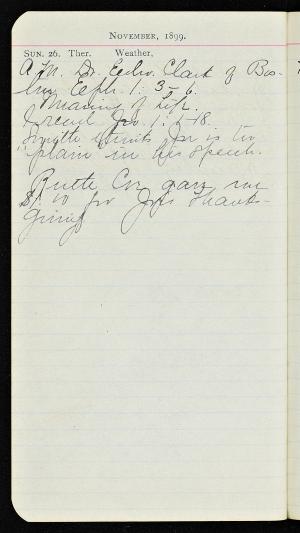 NOVEMBER, 1899.
SUN. 26. THER. WEATHER,
A.M. Dr. Edw. Clark of Bos-
ton Eph. 1: 3-6.
Meaning of Life.
I read Jno. 1: 1-18.
Smith thinks Jno is too
"plain" in his speech.
Butte Co. gave me
$1.00 for Thanks-
giving